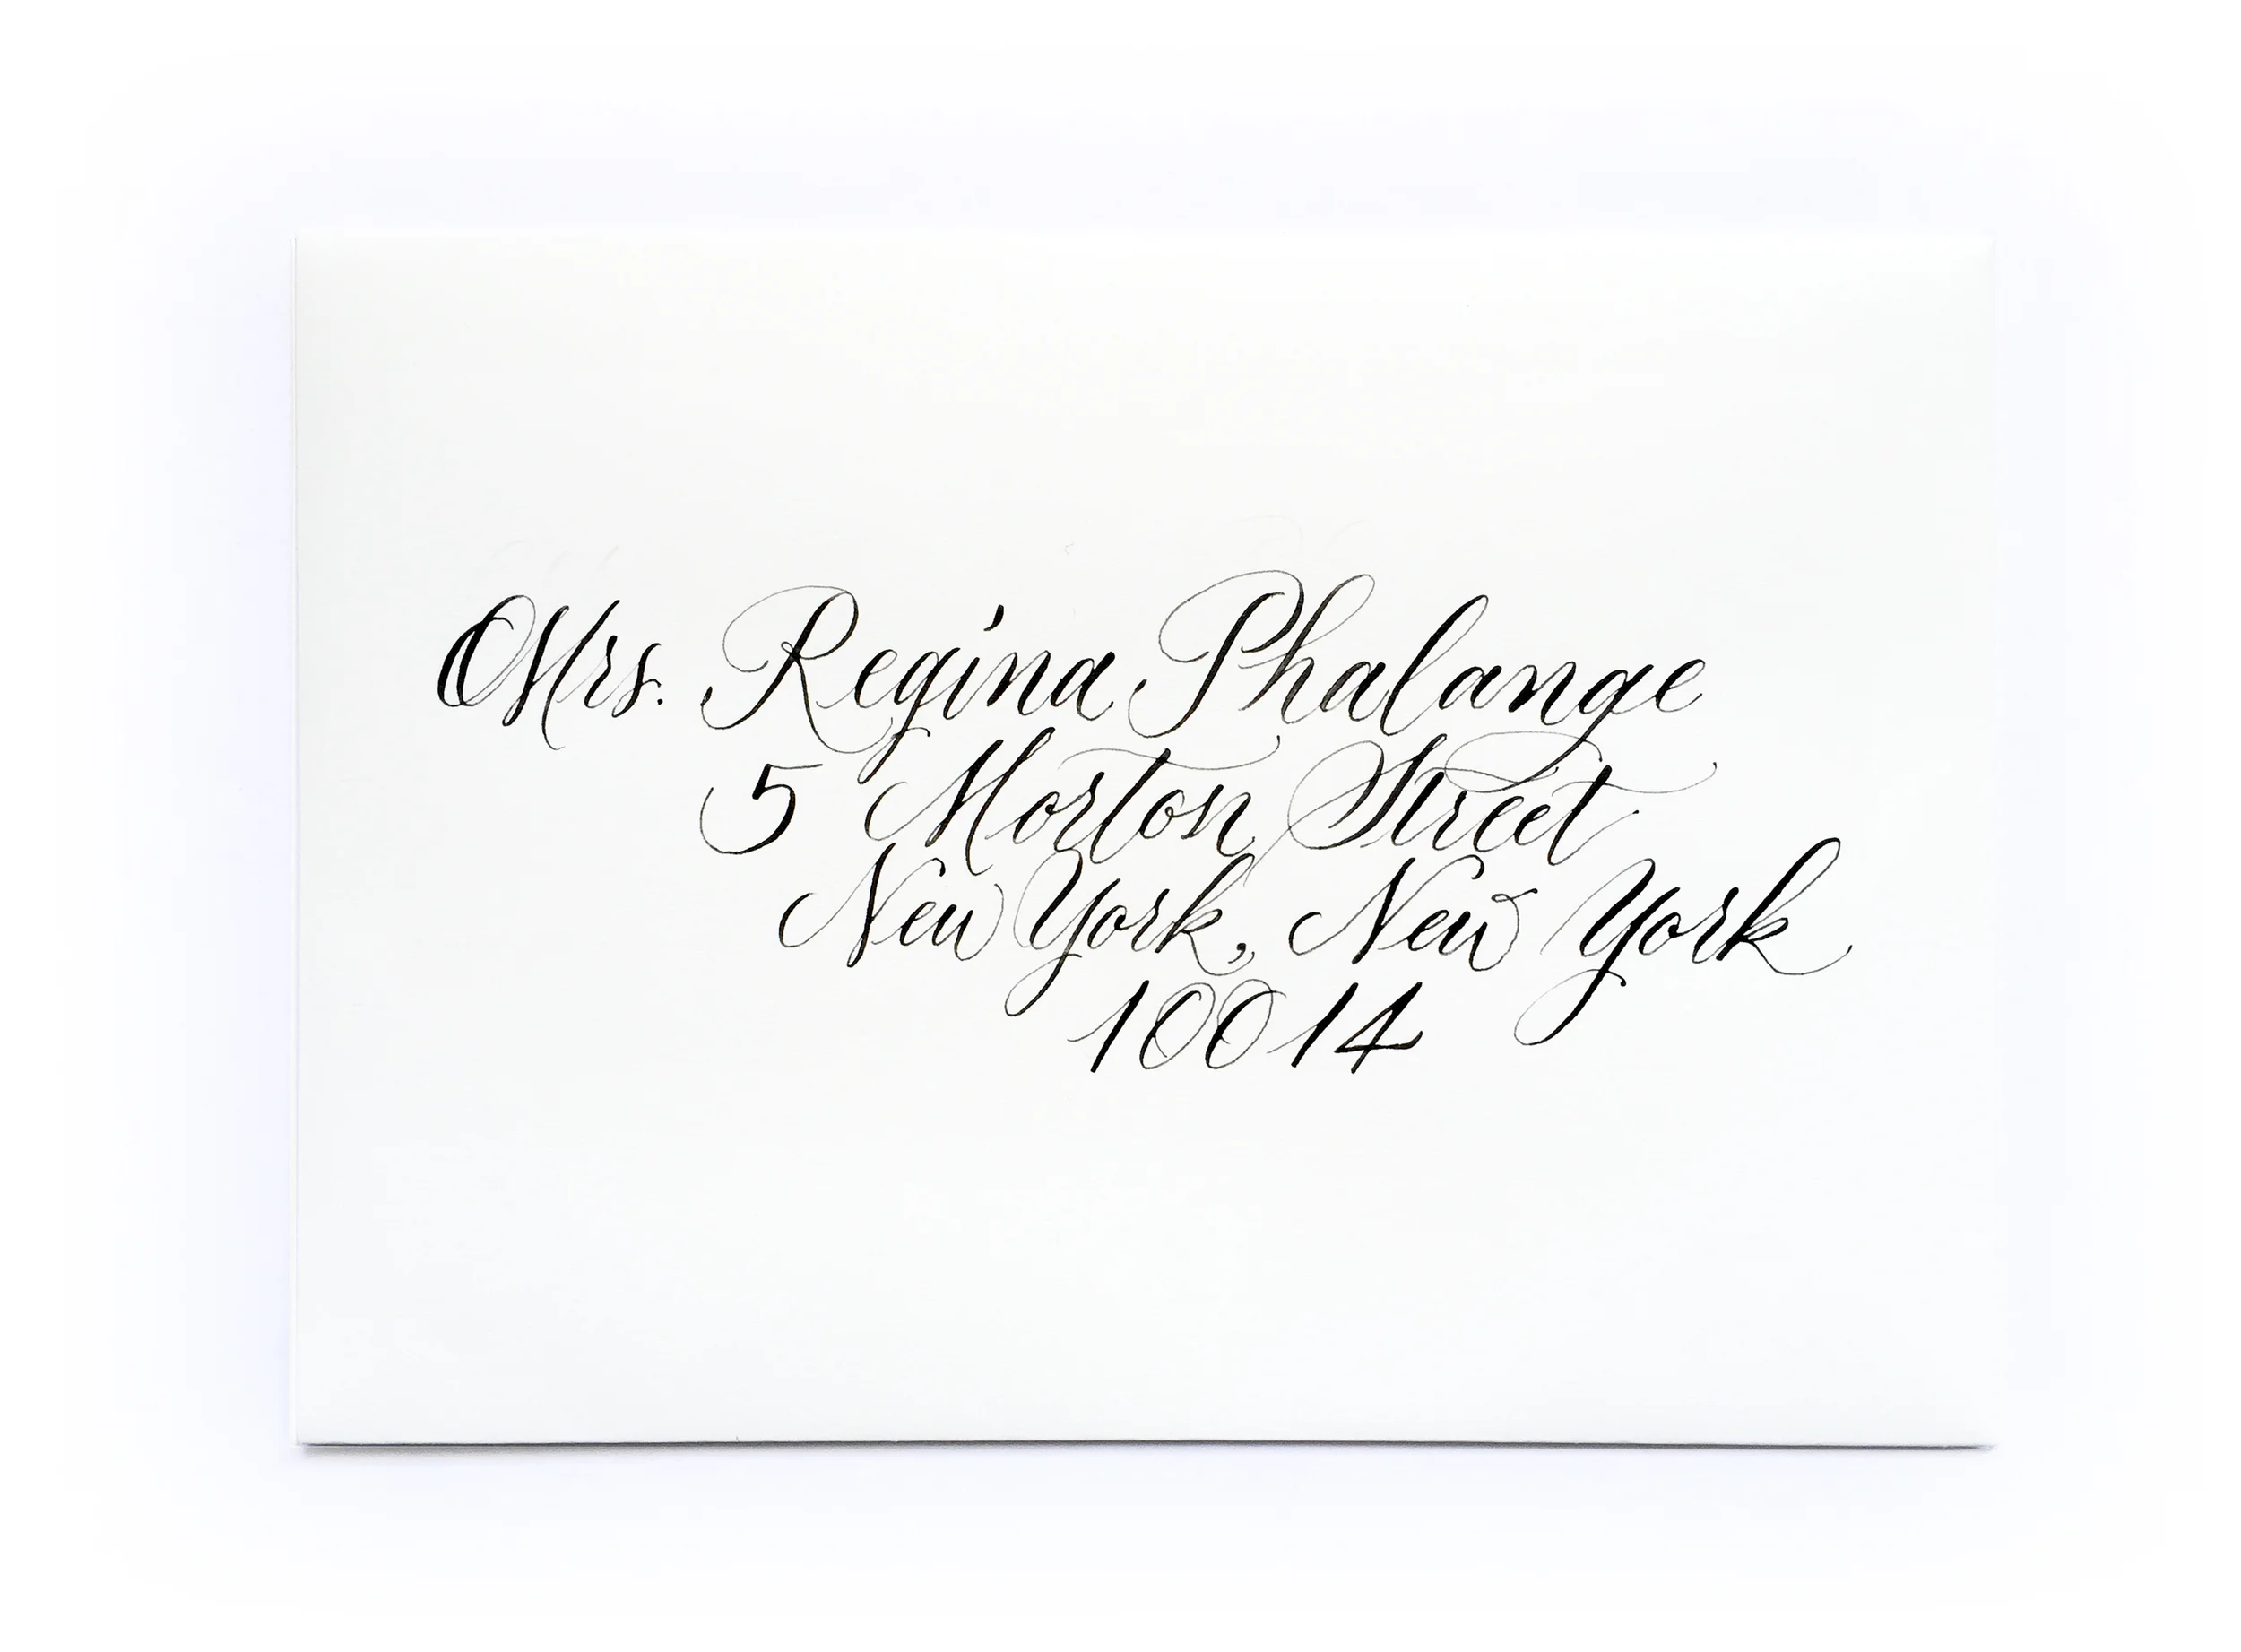 Mrs. Regina Phalange
5 Morton Street
New York, New York
10014